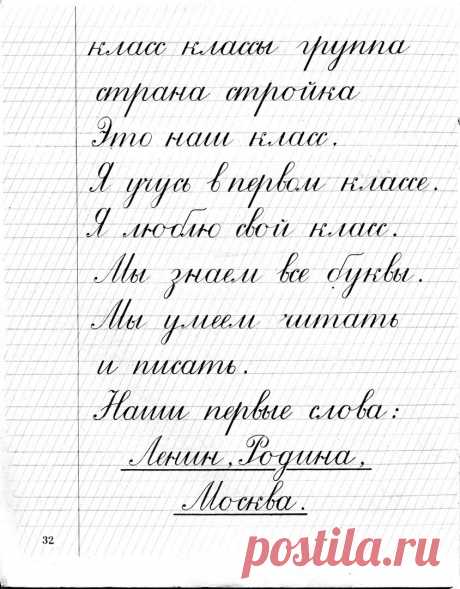 класс классы группа
страна стройка
Это наш класс.
Я учусь в первом классе.
Я люблю свой класс.
Мы знаем все буквы.
Мы умеем читать
и писать.
Наши первые слова:
Ленин, Родина,
Москва.
32
postila.ru